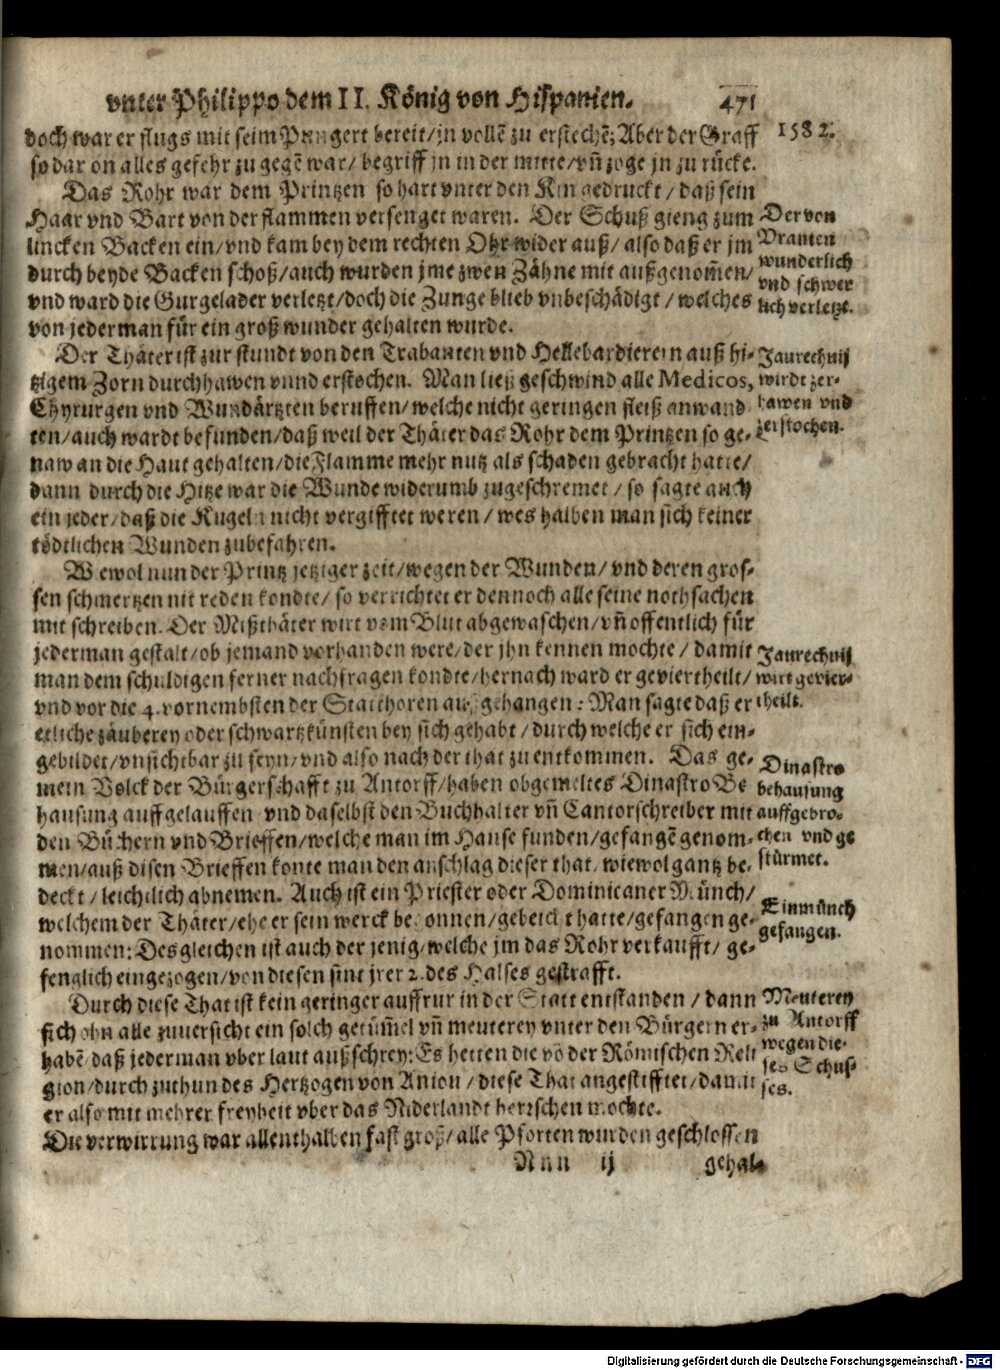 vnter Philippo dem II. König von Hispanien. 471
1582.
doch war er flugs mit seim Pangert bereit/jn vollē zu erstechē; Aber der Graff
so dar on alles gefehr zu gegē war/ begriff jn in der mitte/vñ zoge jn zu rücke.
Das Rohr war dem Printzen so hart vnter den Kin gedruckt/ daß sein
Haar vnd Bart von der flammen versenget waren. Der Schuß gieng zum
lincken Backen ein/vnd kam bey dem rechten Ohr wider auß/ also daß er jm
durch beyde Backen schoß/auch wurden jme zwen Zähne mit außgenom̄en/
vnd ward die Gurgelader verletzt/doch die Zunge blieb vnbeschädigt/ welches
von jederman für ein groß wunder gehalten wurde.
Der von
Vranien
wunderlich
vnd schwer
lich verletzt.
Der Thäter ist zur stundt von den Trabanten vnd Hellebardierern auß hi-
tzigem Zorn durchhawen vnnd erstochen. Man ließ geschwind alle Medicos,
Chyrurgen vnd Wundärtzten beruffen/welche nicht geringen fleiß anwand
ten/auch wardt befunden/daß weil der Thäter das Rohr dem Printzen so ge-
naw an die Haut gehalten/die Flamme mehr nutz als schaden gebracht hatte/
dann durch die Hitze war die Wunde widerumb zugeschremet/ so sagte auch
ein jeder/daß die Kugeln nicht vergifftet weren/ wes halben man sich keiner
tödtlichen Wunden zubefahren.
Jaurechnij
wirdt zer-
hawen vnd
zerstochen.
Wewol nun der Printz jetziger zeit/wegen der Wunden/ vnd deren gros-
sen schmertzen nit reden kondte/ so verrichtet er dennoch alle seine nothsachen
mit schreiben. Der Mißthäter wirt vom Blut abgewaschen/vñ offentlich für
jederman gestalt/ob jemand vorhanden were/der jhn kennen mochte/ damit
man dem schuldigen ferner nachfragen kondte/hernach ward er geviertheilt/
vnd vor die 4. vornembsten der Statthoren auffgehangen: Man sagte daß er
etliche zäuberey oder schwartzkünsten bey sich gehabt/durch welche er sich ein-
gebildet/vnsichtbar zu seyn/vnd also nach der that zu entkommen. Das ge-
mein Volck der Bürgerschafft zu Antorff/haben obgemeltes Dinastro Be
hausung auffgelauffen vnd daselbst den Buchhalter vñ Cantorschreiber mit
den Büchern vnd Brieffen/welche man im Hause funden/gefangē genom-
men/auß disen Brieffen konte man den anschlag dieser that/wiewol gantz be-
deckt/leichtlich abnemen. Auch ist ein Priester oder Dominicaner Münch/
welchem der Thäter/ehe er sein werck begonnen/gebeicht hatte/gefangen ge-
nommen: Desgleichen ist auch der jenig/welche jm das Rohr verkaufft/ ge-
fenglich eingezogen/von diesen sint jrer 2. des Halses gestrafft.
Jaurechnij
wirt gevier-
theilt.
Dinastro
behausung
auffgebro-
chen vnd ge
stürmet.
Ein münch
gefangen.
Durch diese That ist kein geringer auffrur in der Statt entstanden/ dann
sich ohn alle zuuersicht ein solch getüm̄el vñ meuterey vnter den Bürgern er-
habē daß jederman vber laut außschrey: Es hetten die vō der Römischen Reli
gion/durch zuthun des Hertzogen von Aniou/ diese That angestifftet/damit
er also mit mehrer freyheit vber das Niderlandt herrschen mochte.
Die verwirrung war allenthalben fast groß/alle Pforten wurden geschlossen
Meuterey
zu Antorff
wegen die-
ses Schus-
ses.
Nnn ij gehal-
Digitalisierung gefördert durch die Deutsche Forschungsgemeinschaft - DFG